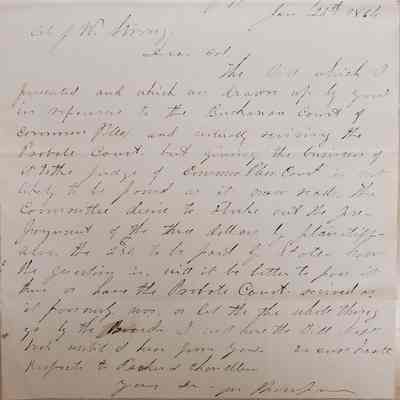 Jan 21th 1864
Col J W. Strong
Dear Col
The Bill which I
presented and which was drawn up by you
in reference to the Buchanan Court of
Common Pleas and reviving the
Probate Court but giving the business of
it to the judge of Common Pleas Court is not
likely to be passed as it now reads. The
Committee desire to strike out the
of the three dollars by plaintiff
the to be paid by State. Now
the question is, will it be better to pass it
thus or have the Probate Court revived as
it formerly was, or let the whole thing
go by the I will have the Bill kept
back until I hear from you.
Respects to Chandler
Yours